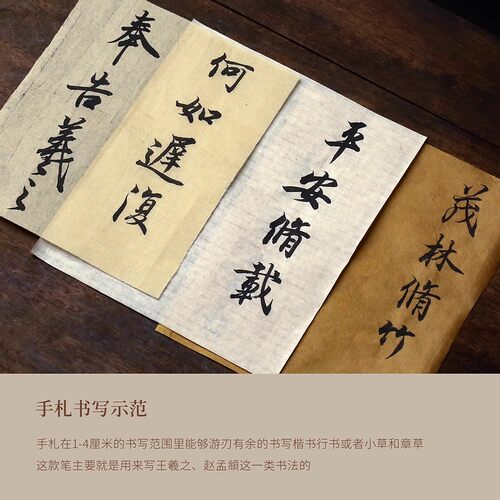 奉告羲之
何如遲復
平安脩載
茂林脩竹
手札书写示范
手札在1-4厘米的书写范围里能够游刃有余的书写楷书行书或者小草和章草
这款笔主要就是用来写王羲之、赵孟頫这一类书法的